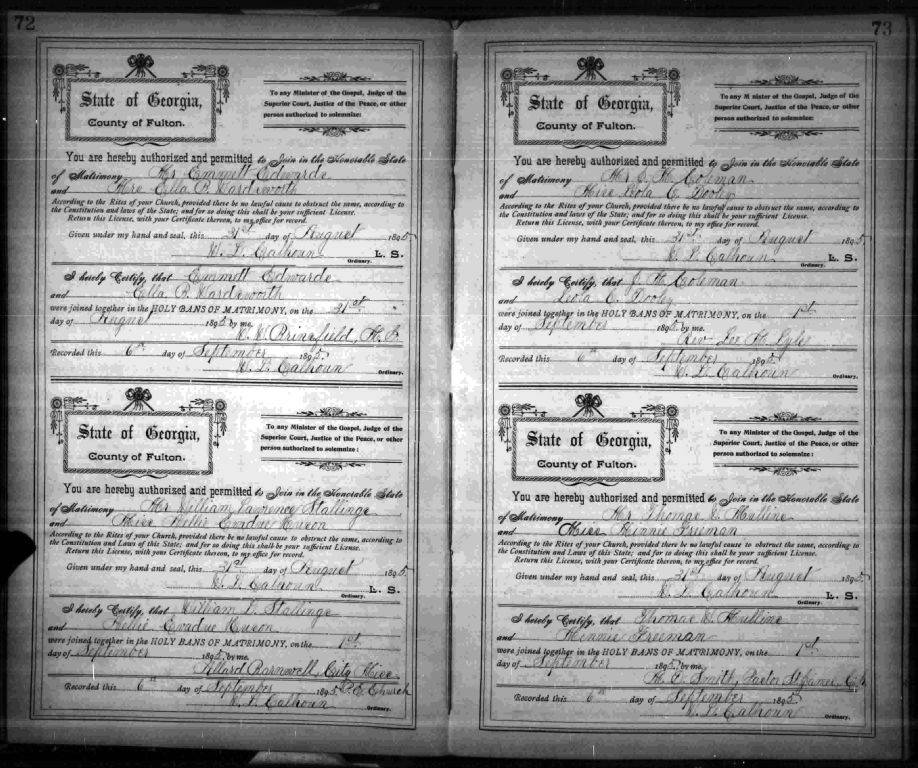 72
State of Georgia,
County of Fulton.
To any Minister of the Gospel, Judge of the
Superior Court, Justice of the Peace, or other
person authorized to solemnize:
You are hereby authorized and permitted to Join in the Honorable State
of Matrimony Mr Emmett Edwards
and Mrs Ella B. Wardsworth
According to the Rites of your Church, provided there be no lawful cause to obstruct the same, according to
the Constitution and laws of the State; and for so doing this shall be your sufficient License.
Return this License, with your Certificate thereon, to my office for record.
Given under my hand and seal, this 31st day of August 1895.
W. L. Calhoun L. S.
Ordinary.
I hereby Certify, that Emmett Edwards
and Ella B. Wardsworth
were joined together in the HOLY BANS OF MATRIMONY, on the 31st
day of August 1895 by me.
Recorded this 6th day of September 1895.
W. L. Calhoun
Ordinary.
State of Georgia,
County of Fulton.
To any Minister of the Gospel, Judge of the
Superior Court, Justice of the Peace, or other
person authorized to solemnize:
You are hereby authorized and permitted to Join in the Honorable State
of Matrimony Mr William Lawrence Stallings
and Miss Nellie Evadue
According to the Rites of your Church, provided there be no lawful cause to obstruct the same, according to the
Constitution and Laws of this State; and for so doing this shall be your sufficient License.
Return this License, with your Certificate thereon, to my office for record.
Given under my hand and seal, this 31st day of August 1895.
W. L. Calhoun L. S.
Ordinary.
I hereby Certify, that William L. Stallings
and Nellie Evadue
were joined together in the HOLY BANS OF MATRIMONY, on the 1st
day of September 1895, by me.
Tillard Barnwell, City Miss.
Recorded this 6th day of September 1895. P. E. Church
W. L. Calhoun
Ordinary.
73
State of Georgia,
County of Fulton.
To any Minister of the Gospel, Judge of the
Superior Court, Justice of the Peace, or other
person authorized to solemnize:
You are hereby authorized and permitted to Join in the Honorable State
of Matrimony Mr J. H. Coleman
and Miss Lola E. Dooly
According to the Rites of your Church, provided there be no lawful cause to obstruct the same, according to the
Constitution and laws of the State; and for so doing this shall be your sufficient License.
Return this License, with your Certificate thereon, to my office for record.
Given under my hand and seal, this 31st day of August 1895.
W. L. Calhoun L. S.
Ordinary.
I hereby Certify, that J. H. Coleman
and E. Dooly
were joined together in the HOLY BANS OF MATRIMONY, on the 1st
day of September 1895 by me.
Rev. Lee H. Lyle
Recorded this 6th day of September 1895
W. L. Calhoun
Ordinary.
State of Georgia,
County of Fulton.
To any Minister of the Gospel, Judge of the
Superior Court, Justice of the Peace, or other
person authorized to solemnize:
You are hereby authorized and permitted to Join in the Honorable State
of Matrimony Mr Thomas W. Mullins
and Miss Minnie Freeman
According to the Rites of your Church, provided there be no lawful cause to obstruct the same, according to the
Constitution and Laws of this State; and for so doing this shall be your sufficient License.
Return this License, with your Certificate thereon, to my office for record.
Given under my hand and seal, this 31st day of August 1895.
W. L. Calhoun L. S.
Ordinary.
I hereby Certify, that Thomas W. Mullins
and Minnie Freeman
were joined together in the HOLY BANS OF MATRIMONY, on the 1st
day of September 1895, by me.
Smith, Pastor St James
Recorded this 6th day of September 1895
W. L. Calhoun
Ordinary.